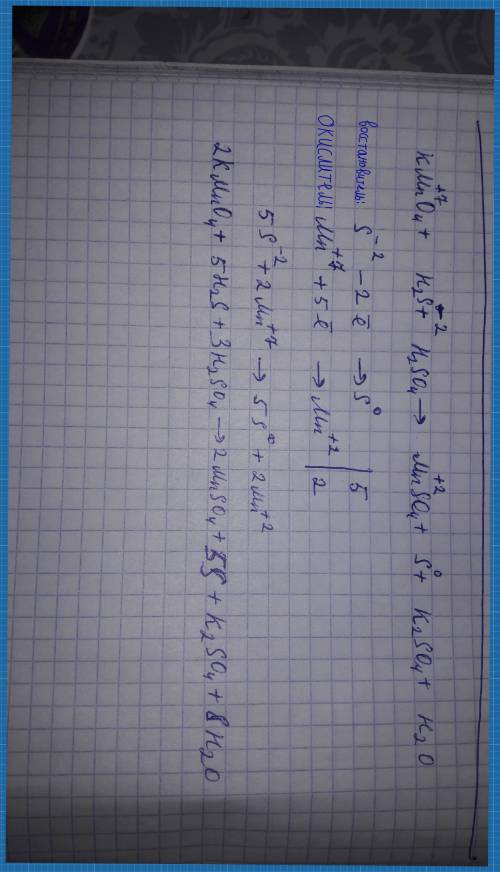 KMnO₄⁺⁷ + H₂S⁻² + H₂SO₄ → Mn⁺²SO₄ + S⁰ + K₂SO₄ + H₂O
восстановитель: S⁻² - 2ē → S⁰ | 5
окислитель: Mn⁺⁷ + 5ē → Mn⁺² | 2
5S⁻² + 2Mn⁺⁷ → 5S⁰ + 2Mn⁺²
2KMnO₄ + 5H₂S + 3H₂SO₄ → 2MnSO₄ + 5S + K₂SO₄ + 8H₂O